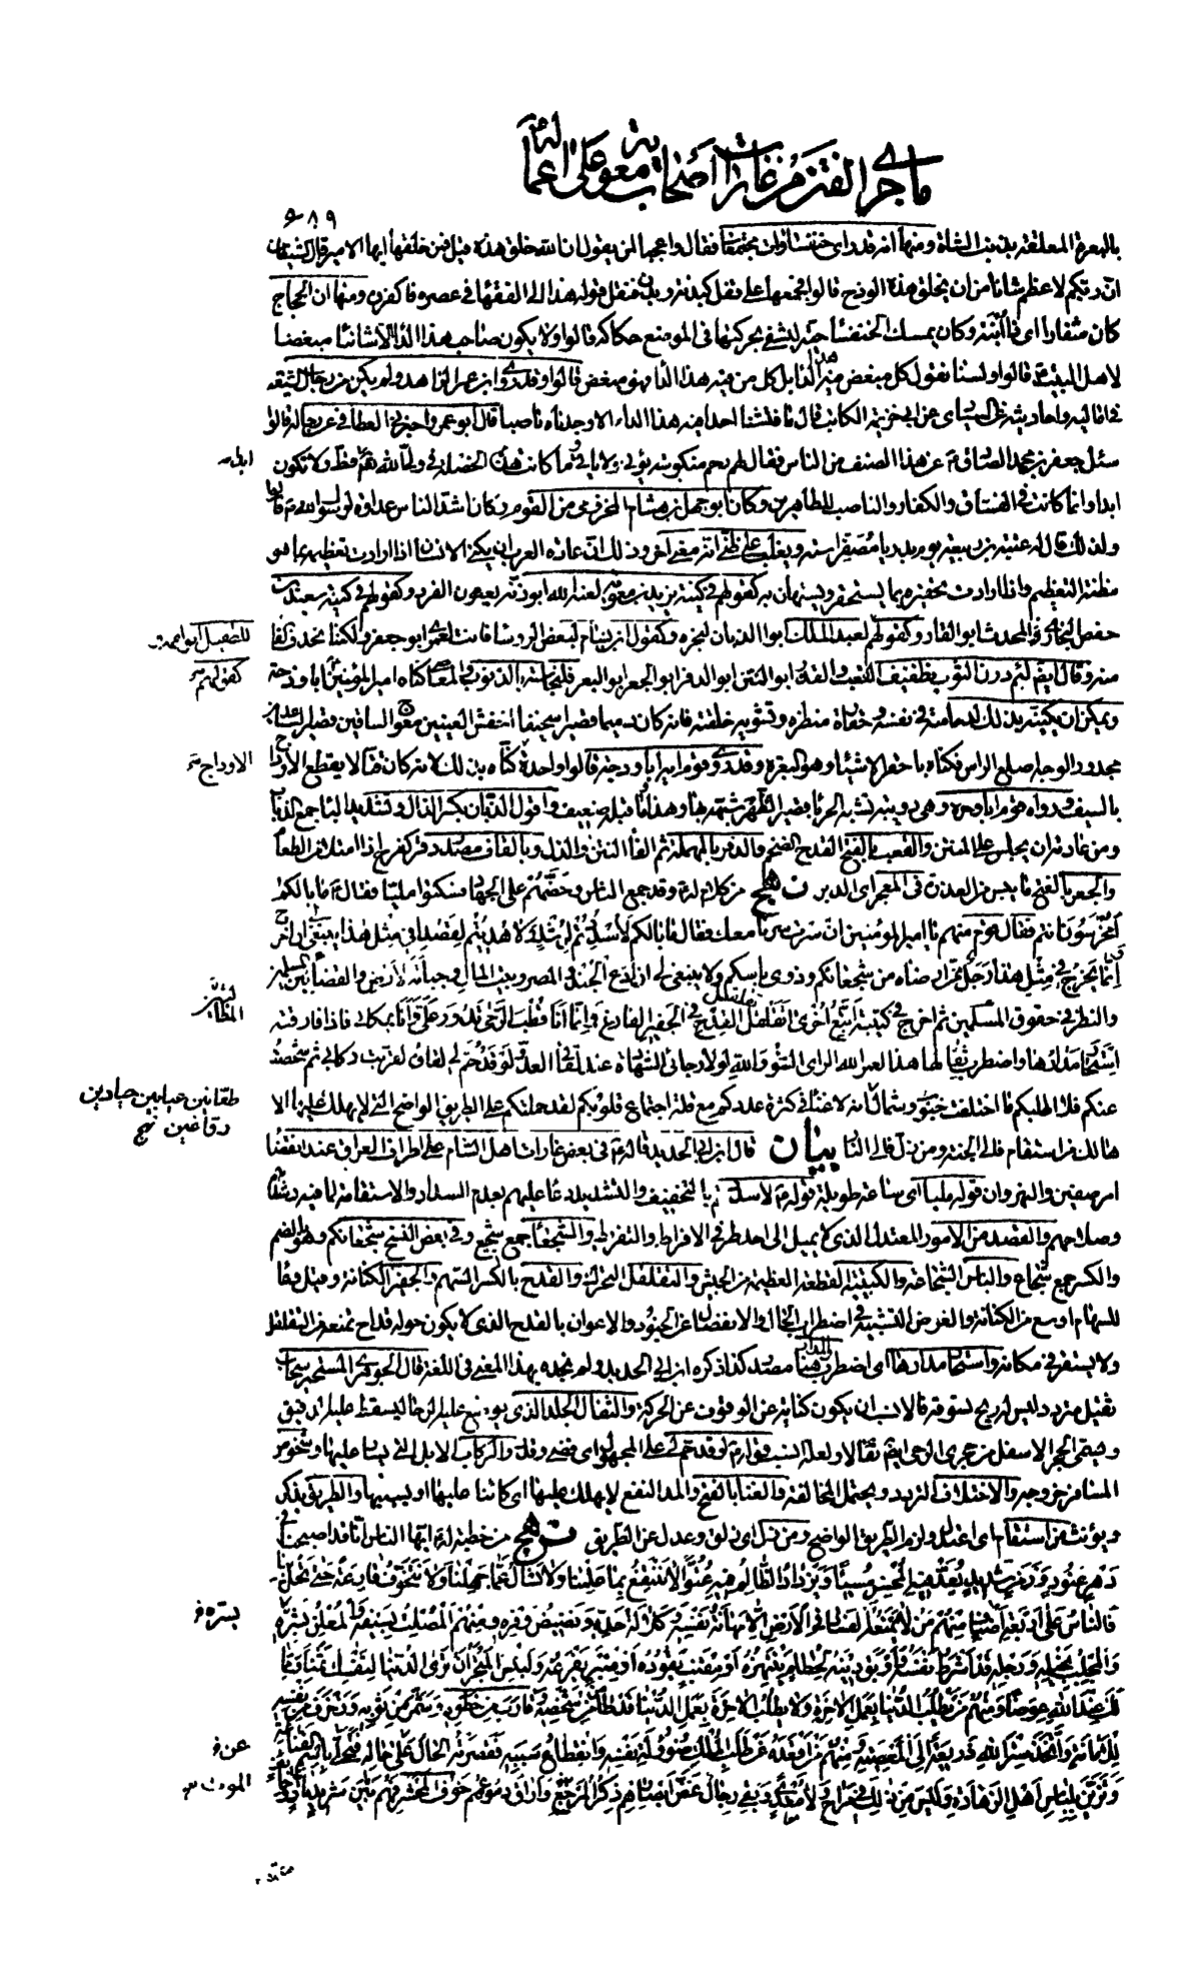 ما جرى من الفتن من غارات أصحاب معوية على أعماله
٦٨٩
بالبعرة المعلقة بذنب الشاة ومنها انه قد راى خنفساوات مجتمعات فقال واعجبا لمن يقول ان الله خلق هذه قيل فمن خلقها ايها الامير قال الشيطان
ان ربكم لاعظم شانا من ان يخلق هذه الوذح قالوا فجمعها على فعل كبدنة وبدن فنقل قوله هذا الى الفقهاء في عصره فاكفروه ومنها ان الحجاج
كان مثفارا اى ذا ابنة وكان يمسك الخنفساء حية ليشفى بحركتها فى الموضع حكاكه قالوا ولا يكون صاحب هذا الداء الا شانئا مبغضا
لاهل البيت قالوا ولسنا نقول كل مبغض فيه هذا الداء بل كل من فيه هذا الداء فهو مبغض قالوا وقد روى ابو عمر الزاهد ولم يكن من رجال الشيعة
فى اماليه واحاديثه عن السيارى عن ابى خزيمة الكاتب قال ما فتشنا احدا فيه هذا الداء الا وجدناه ناصبا قال ابو عمر واخبرنى العطافى عن رجاله قالوا
سئل جعفر بن محمد الصادق ع عن هذا الصنف من الناس فقال لهم رحم منكوسة يؤتى ولا ياتى وما كانت هذه الخصلة فى ولى لله قط ولا تكون
ابدا وانما كانت فى الفساق والكفار والناصب للطاهرين وكان ابو جهل بن هشام المخزومى من القوم وكان اشد الناس عداوة لرسول الله ص قالوا
ولذلك قال له عتبة بن ربيعة يوم بدر يا مصفر استه ويغلب على ظنى انه معنى اخر وذلك ان عادة العرب ان يكنى الانسان اذا ارادت تعظيمه بما هو
مظنة التعظيم واذا ارادت تحقيره بما يستحقر ويستهان به كقولهم فى كنية يزيد بن معوية لعنه الله ابو زنة يعنون القرد وكقولهم فى كنية سعيد بن
حفص البخارى المحدث ابو الفار وكقولهم لعبد الملك ابو الذبان لبخره وكقول ابن بسام لبعض الروساء فانت لعمرى ابو جعفر ولكننا نحذف الفاء
منه وقال ايضا لئيم درن الثوب نظيف القعب والقدر ابو النتن ابو الدفر ابو الجعر ابو البعر فلنجاسته بالذنوب والمعاصى كناه امير المؤمنين ابا وذحة
ويمكن ان يكنيه بذلك لدمامته فى نفسه وحقارة منظره وتشويه خلقته فانه كان دميما قصيرا سخيفا اخفش العينين معوج الساقين قصير الساعدين
مجدور الوجه اصلع الراس فكناه باحقر الاشياء وهو البعرة وقد روى قوم ابا ودجة قالوا واحدة الاوداج كناه بذلك لانه كان قتالا يقطع الاوداج
بالسيف ورواه قوم ابا وحرة وهى دويبة تشبه الحرباء قصيرة الظهر شبهه بها وهذا وما قبله ضعيف واقول الذبان بكسر الذال وتشديد الباء جمع الذباب
ومن عادته ان يجلس على المنتن والقعب بالفتح القدح الضخم والدفر بالمهملة ثم الفاء النتن والذل وبالقاف مصدر دقر كفرح اذا امتلا من الطعام
والجعر بالفتح ما يبس من العذرة فى المجعر اى الدبر نهج من كلام له ع وقد جمع الناس وحضهم على الجهاد فسكتوا مليا فقال ع ما بالكم
أمخرسون انتم فقال قوم منهم يا امير المؤمنين ان سرت سرنا معك فقال ع ما بالكم لا سددتم لرشد ولا هديتم لقصد افى مثل هذا ينبغى ان اخرج
انما يخرج فى مثل هذا رجل ممن ارضاه من شجعانكم وذوى باسكم ولا ينبغى لى ان ادع الجند والمصر وبيت المال وجباية الارض والقضاء بين المسلمين
والنظر فى حقوق المسلمين ثم اخرج فى كتيبة اتبع اخرى اتقلقل تقلقل القدح فى الجفير الفارغ وانما انا قطب الرحى تدور على وانا بمكانى فاذا فارقته
استحار مدارها واضطرب ثفالها هذا لعمر الله الراى السوء والله لولا رجائى الشهادة عند لقائى العدو لو قد حم لى لقاؤه لقربت ركابى ثم شخصت
عنكم فلا اطلبكم ما اختلف جنوب وشمال انه لا غناء فى كثرة عددكم مع قلة اجتماع قلوبكم لقد حملتكم على الطريق الواضح التى لا يهلك عليها الا
هالك من استقام فالى الجنة ومن زل فالى النار بيان قال ابن ابى الحديد قاله ع فى بعض غارات اهل الشام على اطراف العراق عند انقضاء
امر صفين والنهروان قوله مليا اى ساعة طويلة قوله ع لا سددتم بالتخفيف والتشديد دعا عليهم بعدم السداد والاستقامة لما فيه رشدهم
وصلاحهم والقصد من الامور المعتدل الذى لا يميل الى احد طرفى الافراط والتفريط والشجعاء جمع شجيع وفى بعض النسخ شجعانكم وهو بالضم
والكسر جمع شجاع والباس الشجاعة والكتيبة القطعة العظيمة من الجيش والتقلقل التحرك والقدح بالكسر السهم والجفير الكنانة وقيل وعاء
للسهام اوسع من الكنانة والغرض التشبيه فى اضطراب الحال والانفصال عن الجنود والاعوان بالقدح الذى لا يكون حوله قداح تمنعه من التقلقل
ولا يستقر فى مكانه واستحار مدارها اى اضطرب المدار هنا مصدر كذا ذكره ابن ابى الحديد ولم نجده بهذا المعنى فى اللغة قال الجوهرى المستحير سحاب
ثقيل متردد ليس له ريح تسوقه فالانسب ان يكون كناية عن الوقوف عن الحركة والثفال الجلد الذى يوضع عليه الرحا ليسقط عليه الدقيق
ويسمى الحجر الاسفل من حجرى الرحى ايضا ثفالا ولعله انسب قوله ع لو قد حم لى على المجهول اى قضى وقدر والركاب الابل التى يسار عليها وشخوص
المسافر خروجه والاختلاف التردد ويحتمل المخالفة والغناء بالفتح والمد النفع لا يهلك عليها اى كائنا عليها او بسببها والطريق يذكر
ويؤنث من استقام اى اعتدل ولزم الطريق الواضح ومن زل اى زلق وعدل عن الطريق نهج من خطبة له ع ايها الناس انا قد اصبحنا فى
دهر عنود وزمن شديد يعد فيه المحسن مسيئا ويزداد الظالم فيه عتوا لا ننتفع بما علمنا ولا نسأل عما جهلنا ولا نتخوف قارعة حتى تحل بنا
فالناس على اربعة اصناف منهم من لا يمنعه الفساد فى الارض الا مهانة نفسه وكلالة حده ونضيض وفره ومنهم المصلت بسيفه والمعلن بشره
والمجلب بخيله ورجله قد اشرط نفسه واوبق دينه لحطام ينتهزه او مقنب يقوده او منبر يفرعه ولبئس المتجر ان ترى الدنيا لنفسك ثمنا ومما
لك عند الله عوضا ومنهم من يطلب الدنيا بعمل الاخرة ولا يطلب الاخرة بعمل الدنيا قد طامن من شخصه وقارب من خطوه وشمر من ثوبه وزخرف من نفسه
للامانة واتخذ ستر الله ذريعة الى المعصية ومنهم من اقعده عن طلب الملك ضؤولة نفسه وانقطاع سببه فقصرته الحال على حاله فتحلى باسم القناعة
وتزين بلباس اهل الزهادة وليس من ذلك فى مراح ولا مغدى وبقى رجال غض ابصارهم ذكر المرجع واراق دموعهم خوف المحشر فهم بين شريد ناد
الاوداج
طعانين عيابين حيادين
رواغين نهج
بستره
عن